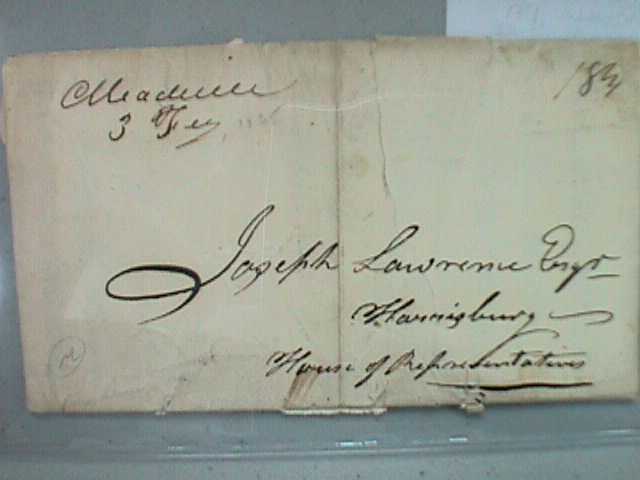 Meadville
3 Feb 18¾
Joseph Lawrence Esqr
Harrisburg
House of Representatives